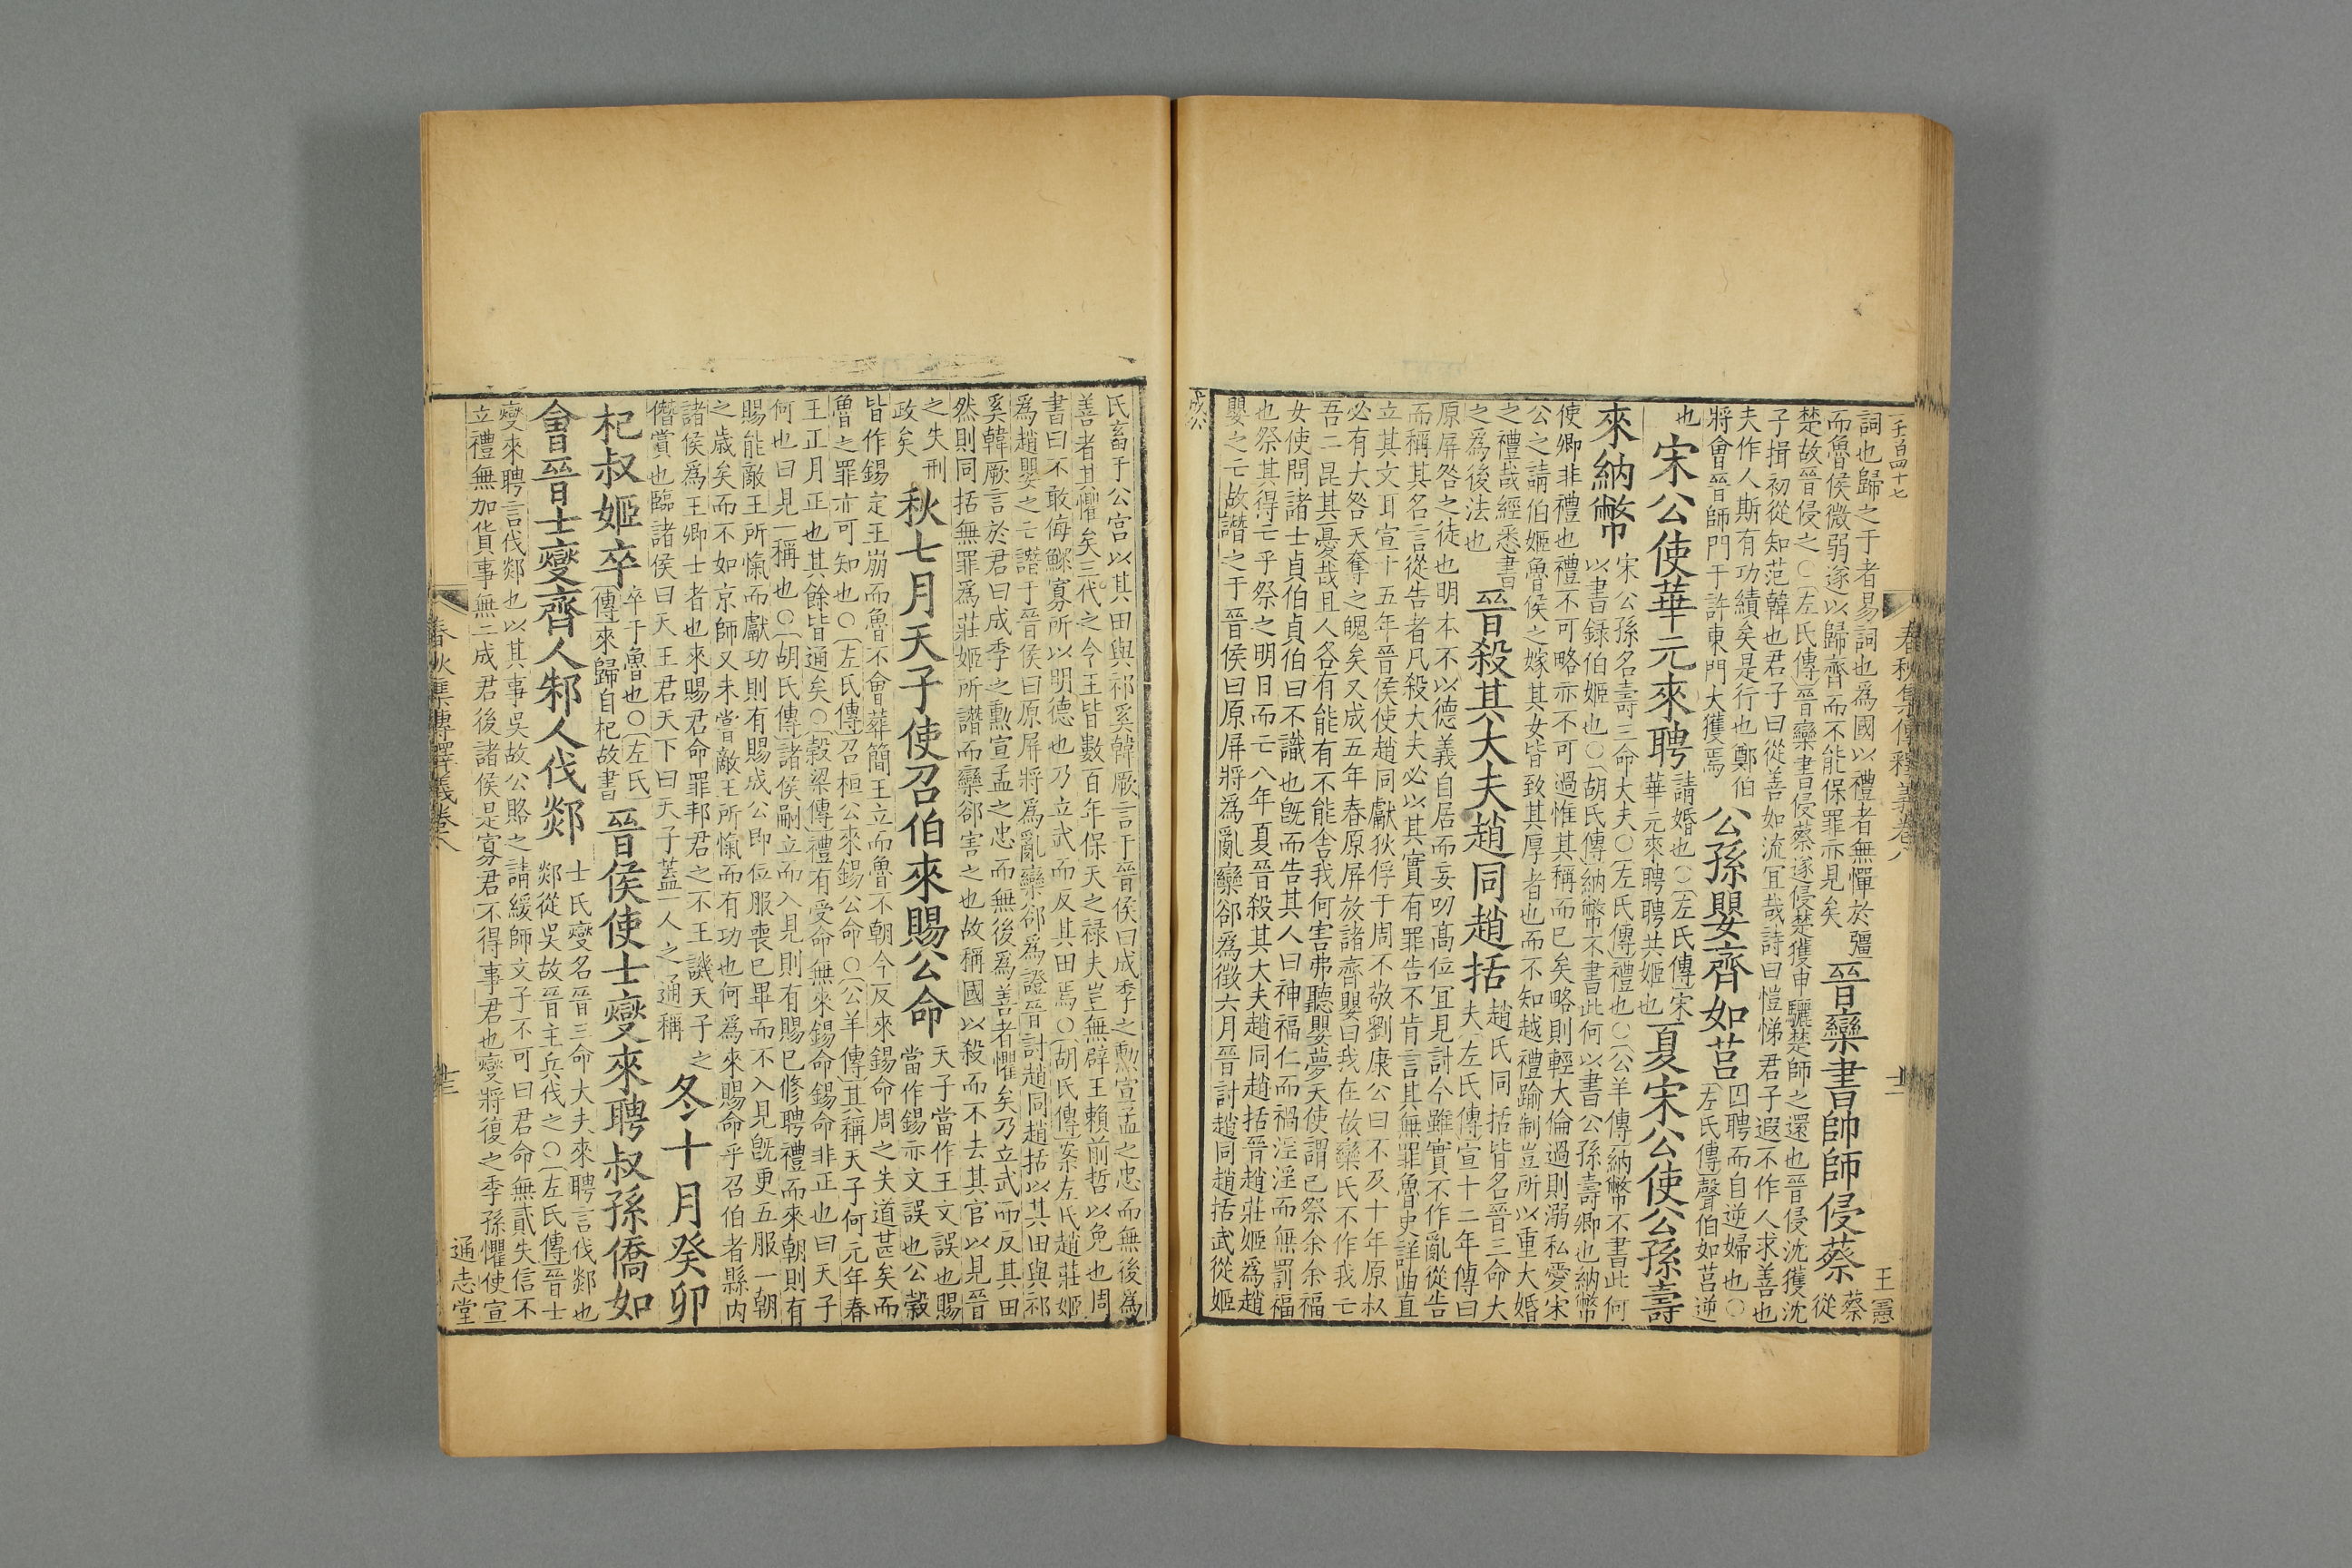 一千百四十七
春秋集傳釋義卷八
王憲
詞也歸之于者易詞也為國以禮者無憚於彊
而魯侯微弱遂以歸齊而不能保罪亦見矣
晉欒書帥師侵蔡
蔡從
楚故晉侵之○左氏傳晉欒書侵蔡遂侵楚獲申驪楚師之還也晉侵沈獲沈
子揖初從知范韓也君子曰從善如流宜哉詩曰愷悌君子遐不作人求善也
夫作人斯有功績矣是行也鄭伯
將會晉師門于許東門大獲焉
公孫嬰齊如莒
四聘而自逆婦也○
左氏傳聲伯如莒逆
也
宋公使華元來聘
請婚也○左氏傳宋
華元來聘聘共姬也
夏宋公使公孫壽
來納幣
宋公孫名壽三命大夫○左氏傳禮也○公羊傳納幣不書此何
以書録伯姬也○胡氏傳納幣不書此何以書公孫壽卿也納幣
使卿非禮也禮不可略亦不可過惟其稱而已矣略則輕大倫過則溺私愛宋
公之請伯姬魯侯之嫁其女皆致其厚者也而不知越禮踰制豈所以重大婚
之禮哉經悉書
之為後法也
晉殺其大夫趙同趙括
趙氏同括皆名晉三命大
夫左氏傳宣十二年傳曰
原屏咎之徒也明本不以德義自居而妄叨髙位宜見討今雖實不作亂從告
而稱其名言從告者凡殺大夫必以其實有罪告不肯言其無罪魯史詳曲直
立其文耳宣十五年晉侯使趙同獻狄俘于周不敬劉康公曰不及十年原叔
必有大咎天奪之魄矣又成五年春原屏放諸齊嬰曰我在故欒氏不作我亡
吾二昆其憂哉且人各有能有不能舍我何害弗聽嬰夢天使謂已祭余余福
女使問諸士貞伯貞伯曰不識也旣而告其人曰神福仁而禍淫淫而無罰福
也祭其得亡乎祭之明日而亡八年夏晉殺其大夫趙同趙括晉趙莊姬為趙
嬰之亡故譖之于晉侯曰原屏將為亂欒郤為徵六月晉討趙同趙括武從姬
氏畜于公宫以其田與祁奚韓厥言于晉侯曰成季之勲宣孟之忠而無後為
善者其懼矣三代之令王皆數百年保天之禄夫豈無辟王賴前哲以免也周
書曰不敢侮鰥寡所以明德也乃立武而反其田焉○胡氏傳案左氏趙莊姬
為趙嬰之亡譖于晉侯曰原屏將為亂欒郤為證晉討趙同趙括以其田與祁
奚韓厥言於君曰成季之勲宣孟之忠而無後為善者懼矣乃立武而反其田
然則同括無罪為莊姬所譖而欒郤害之也故稱國以殺而不去其官以見晉
之失刑
政矣
秋七月天子使召伯來賜公命
天子當作王文誤也賜
當作錫亦文誤也公糓
皆作錫定王崩而魯不會葬簡王立而魯不朝今反來錫命周之失道甚矣而
魯之罪亦可知也○左氏傳召桓公來錫公命○公羊傳其稱天子何元年春
王正月正也其餘皆通矣○糓梁傳禮有受命無來錫命錫命非正也曰天子
何也曰見一稱也○胡氏傳諸侯嗣立而入見則有賜已修聘禮而來朝則有
賜能敵王所愾而獻功則有賜成公即位服喪已畢而不入見旣更五服一朝
之歲矣而不如京師又未嘗敵王所愾而有功也何為來賜命乎召伯者縣内
諸侯為王卿士者也來賜君命罪邦君之不王譏天子之
僭賞也臨諸侯曰天王君天下曰天子蓋一人之通稱
冬十月癸卯
杞叔姬卒
卒于魯也○左氏
傳來歸自杞故書
晉侯使士燮來聘叔孫僑如
會晉士燮齊人邾人伐郯
士氏燮名晉三命大夫來聘言伐郯也
郯從吳故晉主兵伐之○左氏傳晉士
燮來聘言伐郯也以其事吳故公賂之請緩師文子不可曰君命無貳失信不
立禮無加貨事無二成君後諸侯是寡君不得事君也燮將復之季孫懼使宣
春秋集傳釋義卷八
通志堂